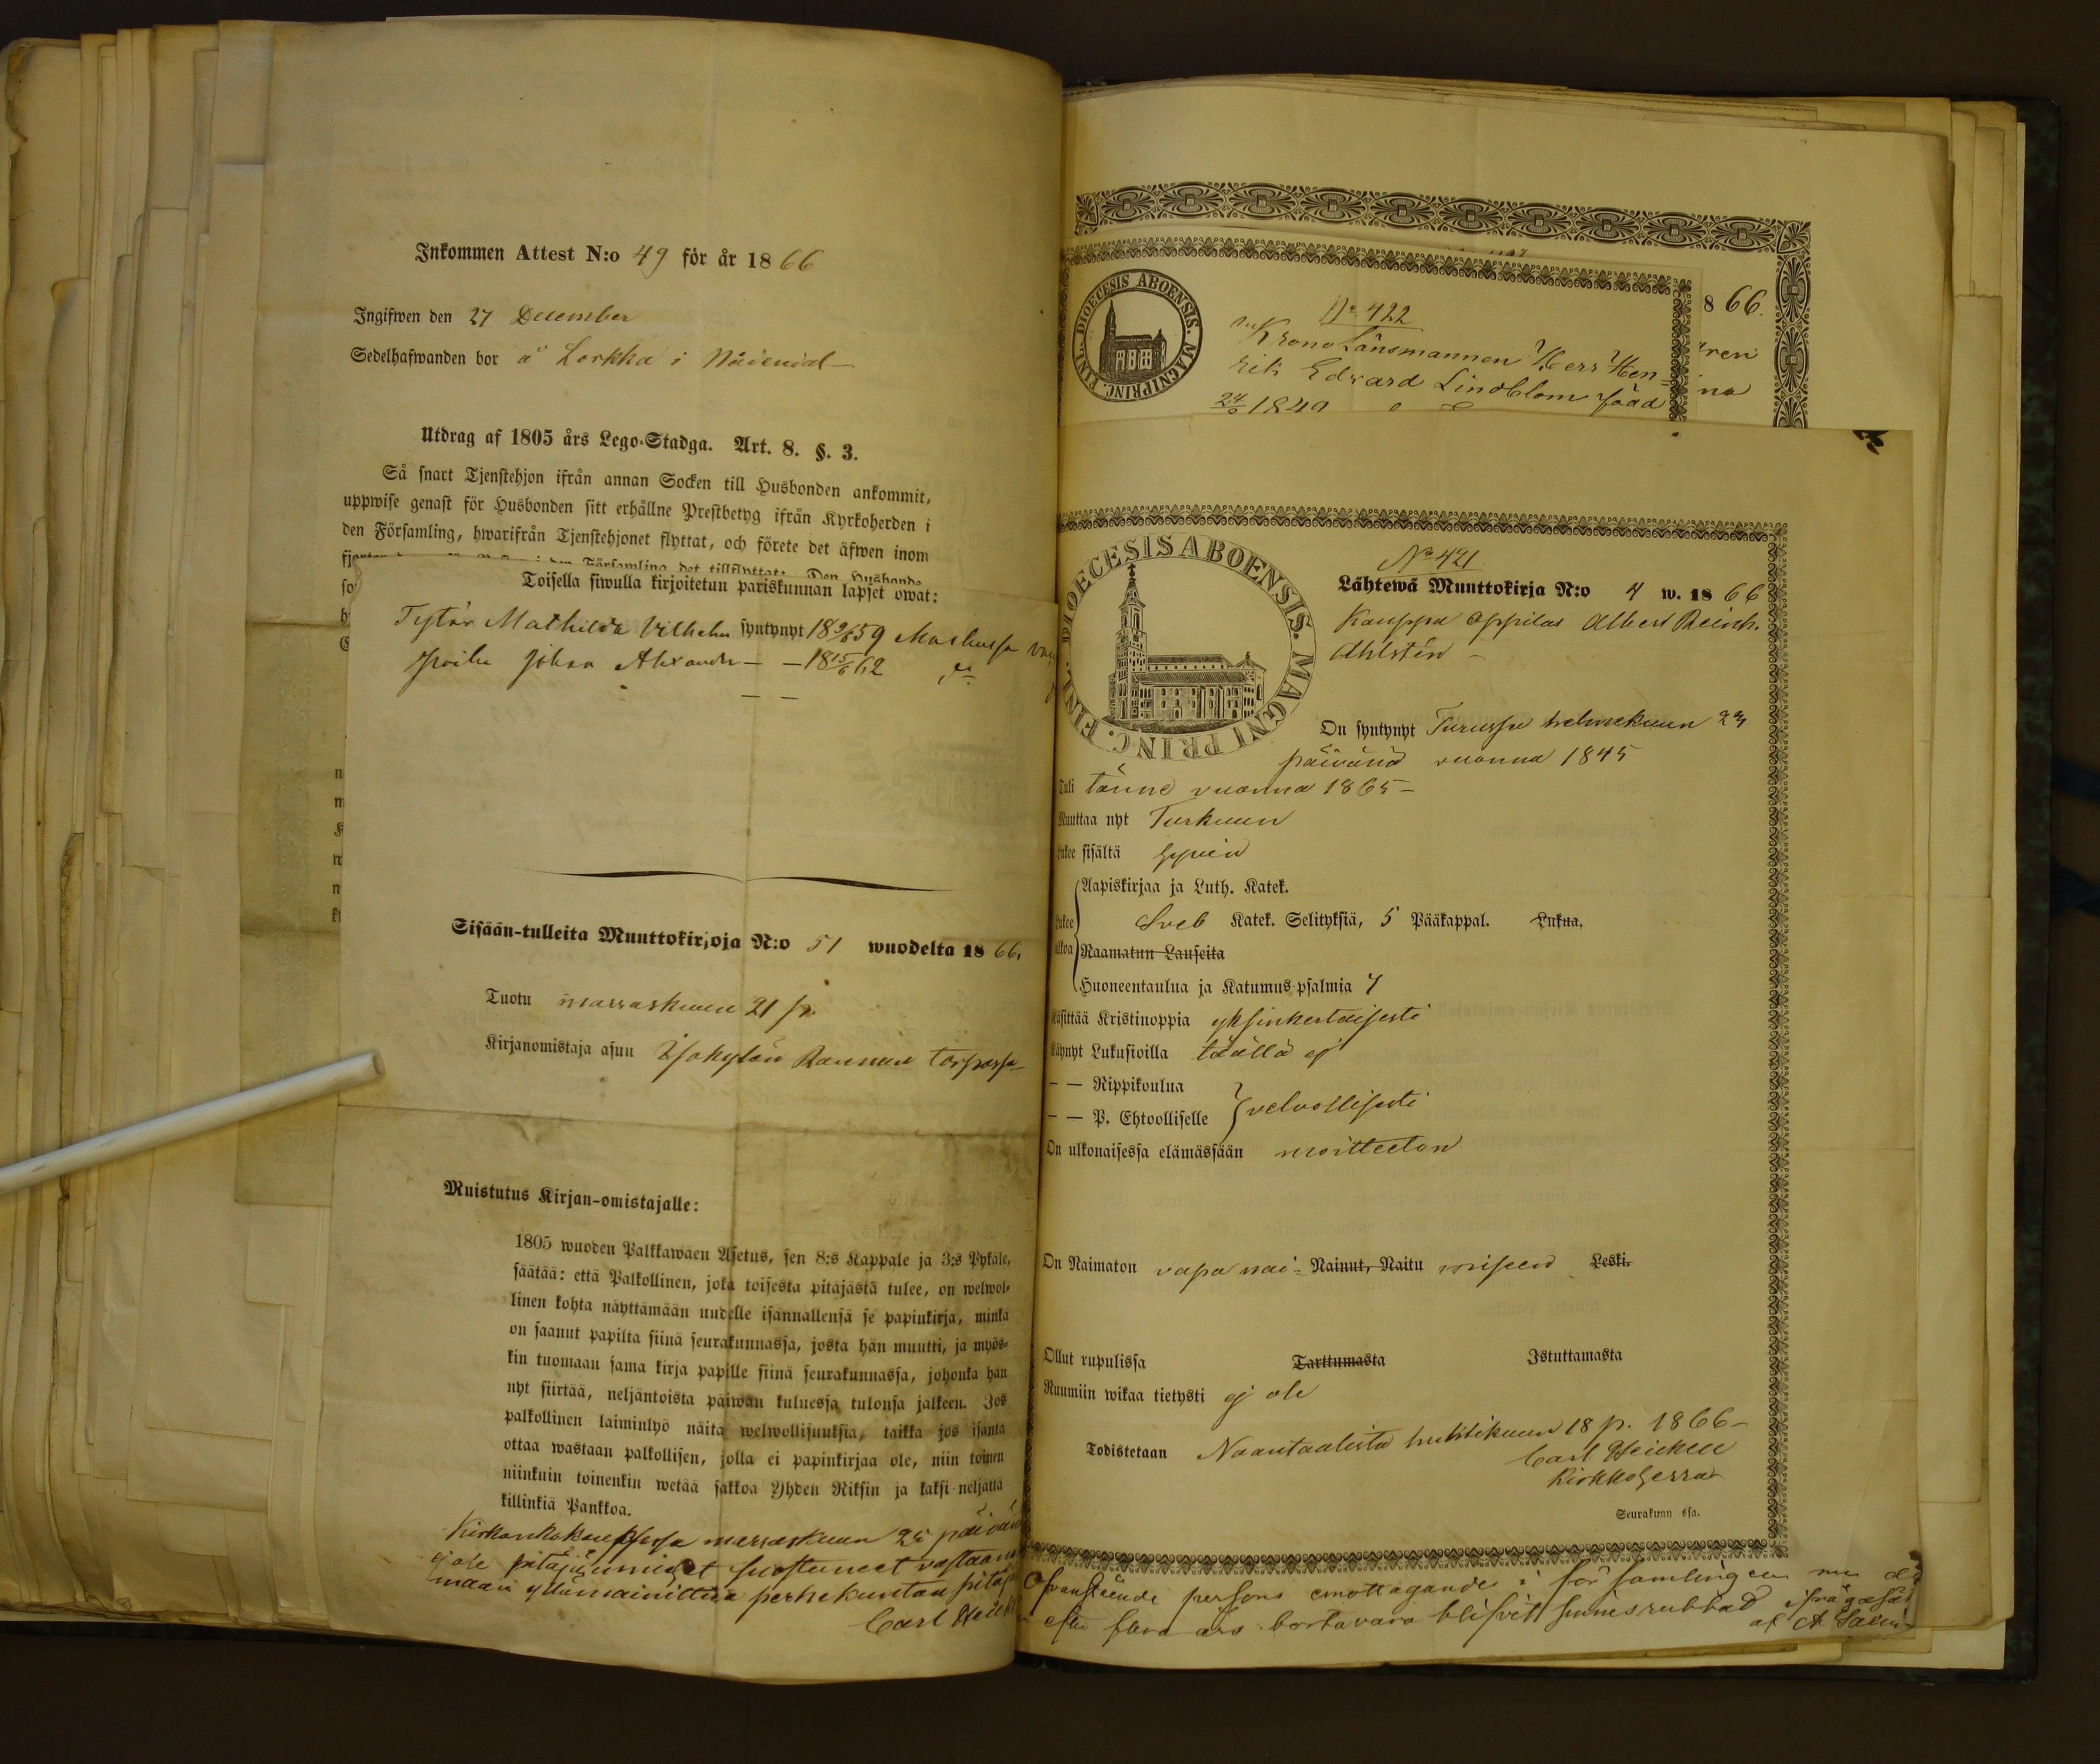 Inkommen Attest N:o 49 för år 1866
Ingifwen den 27 December
Sedelhafwanden bor å Lorkka i Nådendal
Utdrag af 1805 års Lego-Stadga. Art. 8. §. 3.
Så snart Tjenstehjon ifrån annan Socken till Husbonden ankommit,
uppwise genast för Husbonden sitt erhållne Prestbetyg ifrån Kyrkoherden i
den Församling, hwarifrån Tjenstehjonet flyttat, och förete det äfwen inom
Församling det tillflyttat: Den Husbonde
Toisella siwulla kirjoitetun pariskunnan lapset owat:
Tytär Mathilda Vilhelm syntynyt 18 59 Maskussa
Poika Johan Alexander — — 18 15/6 62 d:o
Sisään-tulleita Muuttokirjoja N:o 51 wuodelta 1866.
Tuotu marraskuun 21 p.
Kirjanomistaja asuu Isokylän Rannan torpassa
Muistutus Kirjan-omistajalle:
1805 wuoden Palkkawäen Asetus, sen 8:s Kappale ja 3:s Pykäle,
säätää: että Palkollinen, joka toisesta pitäjästä tulee, on welwol-
linen kohta näyttämään uudelle isännällensä se papinkirja, minkä
on saanut papilta siinä seurakunnassa, josta hän muutti, ja myös-
kin tuomaan sama kirja papille siinä seurakunnassa, johonka hän
nyt siirtää, neljäntoista päiwän kuluessa tulonsa jälkeen. Jos
palkollinen laiminlyö näitä welwollisuuksia, taikka jos isäntä
ottaa wastaan palkollisen, jolla ei papinkirjaa ole, niin toinen
niinkuin toinenkin wetää sakkoa Yhden Riksin ja kaksi neljättä
killinkiä Pankkoa.
Kirkonkokouksessa marraskuun 25 päivän
ej ole pitäjänmiehet suostuneet vastaanot
maan ylämainittua perhekuntaa
Carl Heick
866.
na
DIOECESIS ABOENSIS. MAGNI PRINC. FINL.
No 422
Kronolänsmannen Herr Hen=
rik Edvard Lindblom född
24/6 1840
DIOECESIS ABOENSIS. MAGNI PRINC. FINL.
No 421
Lähtewä Muuttokirja N:o 4 w. 1866
Kauppa oppilas Albert Reinh.
Ahlstén
On syntynyt Turussa helmekuun 23
päivänä vuonna 1845
Tuli tänne vuonna 1865 —
Muuttaa nyt Turkuun
Lukee sisältä hyvin
Aapiskirjaa ja Luth. Katek.
Lukee ulkoa Sveb Katek. Selityksiä, 5 Pääkappal. Lukua.
Raamatun Lauseita
Huoneentaulua ja Katumus-psalmia 7
Käsittää Kristinoppia yksinkertaisesti
Käynyt Lukusioilla täällä ej
— — Rippikoulua
— — P. Ehtoolliselle velvollisesti
On ulkonaisessa elämässään moitteeton
On Naimaton vapa nai= Nainut, Naitu miseen Leski.
Ollut rupulissa Tarttumasta Istuttamasta
Ruumiin wikaa tietysti ej ole
Todistetaan Naantalista huhtikuun 18 p. 1866 —
Carl Heickell
Kirkkoherra
Seurakunn ssa.
Ofvanstående persons emottagande i församlingen
efter flera års bortavaro blifvit
af A